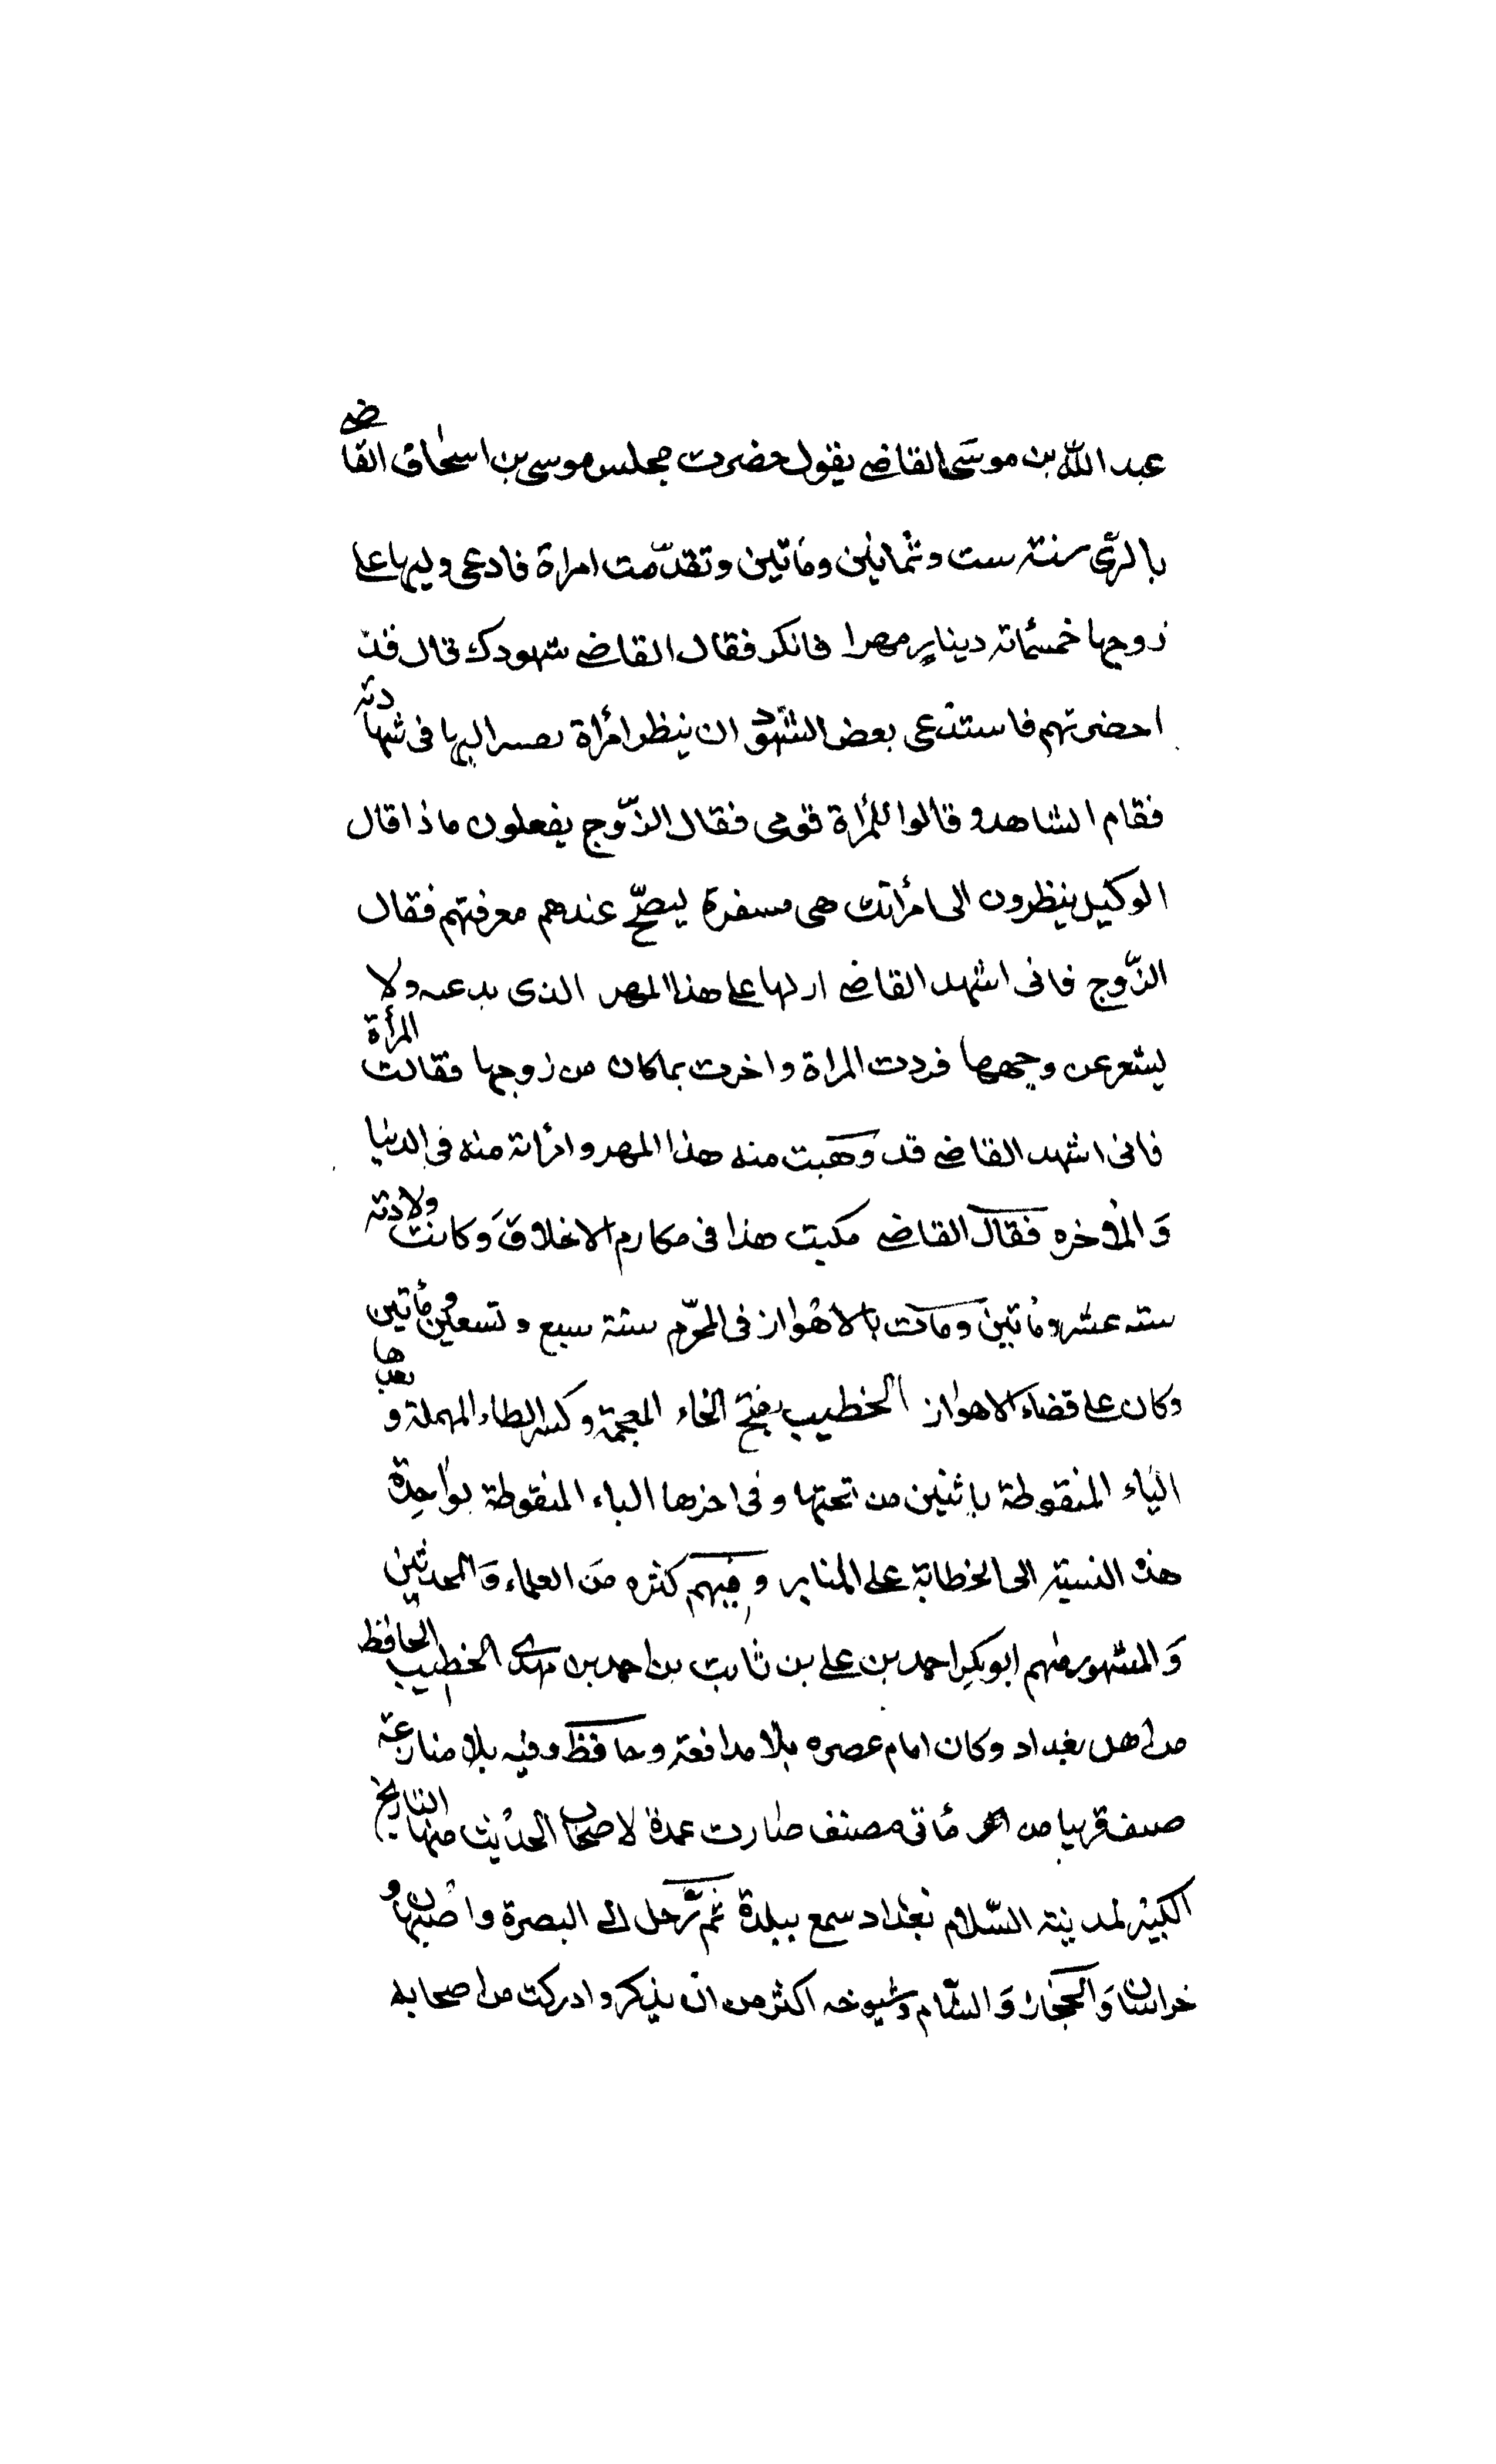 عبد الله بن موسى القاضي يقول حضرت مجلس موسى بن اسحاق القاضي
بالري سنة ست وثمانين ومأتين وتقدّمت امراة فادعى وليها على
زوجها خمسمائة دينار مهرا فانكر فقال القاضي شهودك قال قد
احضرتهم فاستدعى بعض الشهود ان ينظر امرأة اليها في شهادته
فقام الشاهد و قالوا للمرأة قومى فقال الزّوج يفعلون ماذا قال
الوكيل ينظرون الى امرأتك هى مسفرة ليصحّ عندهم معرفتهم فقال
الزّوج فانى اشهد القاضي ان لها على هذا المهر الذى يدعيه ولا
يسفر عن وجهها فردت المراة واخرت بما كان من زوجها فقالت المرأة
فانى اشهد القاضي قد وهبت منه هذا المهر وابرأته منه فى الدنيا
والآخره فقال القاضي مكبت هذا فى مكارم الاخلاق وكانت ولادته
سته عشر ومأتين ومات بالاهواز فى المحرّم سنة سبع وتسعين ومأتين
وكان على قضاء الاهواز الخطيب بفتح الخاء المعجمة وكسر الطاء المهملة و بعدها
الياء المنقوطة باثنين من تحتها وفى اخرها الباء المنقوطة بواحدة
هذه النسبة الى الخطابة على المنابر وفيهم كثره من العلماء والمحدثين
والمشهور منهم ابو بكر احمد بن على بن ثابت بن احمد بن مهدى الخطيب الحافظ
من اهل بغداد وكان امام عصره بلا مدافعة وحافظ وقته بلا منازعة
صنف قريبا من مأتى مصنف صارت عمدة لاصحاب الحديث منها التاريخ
الكبير لمدينة السّلام بغداد سمع ببلدة ثم رحل الى البصرة واصبهان و
خراسان والحجاز والشام وشيوخه اكثر من ان يذكر وادركت من اصحابه